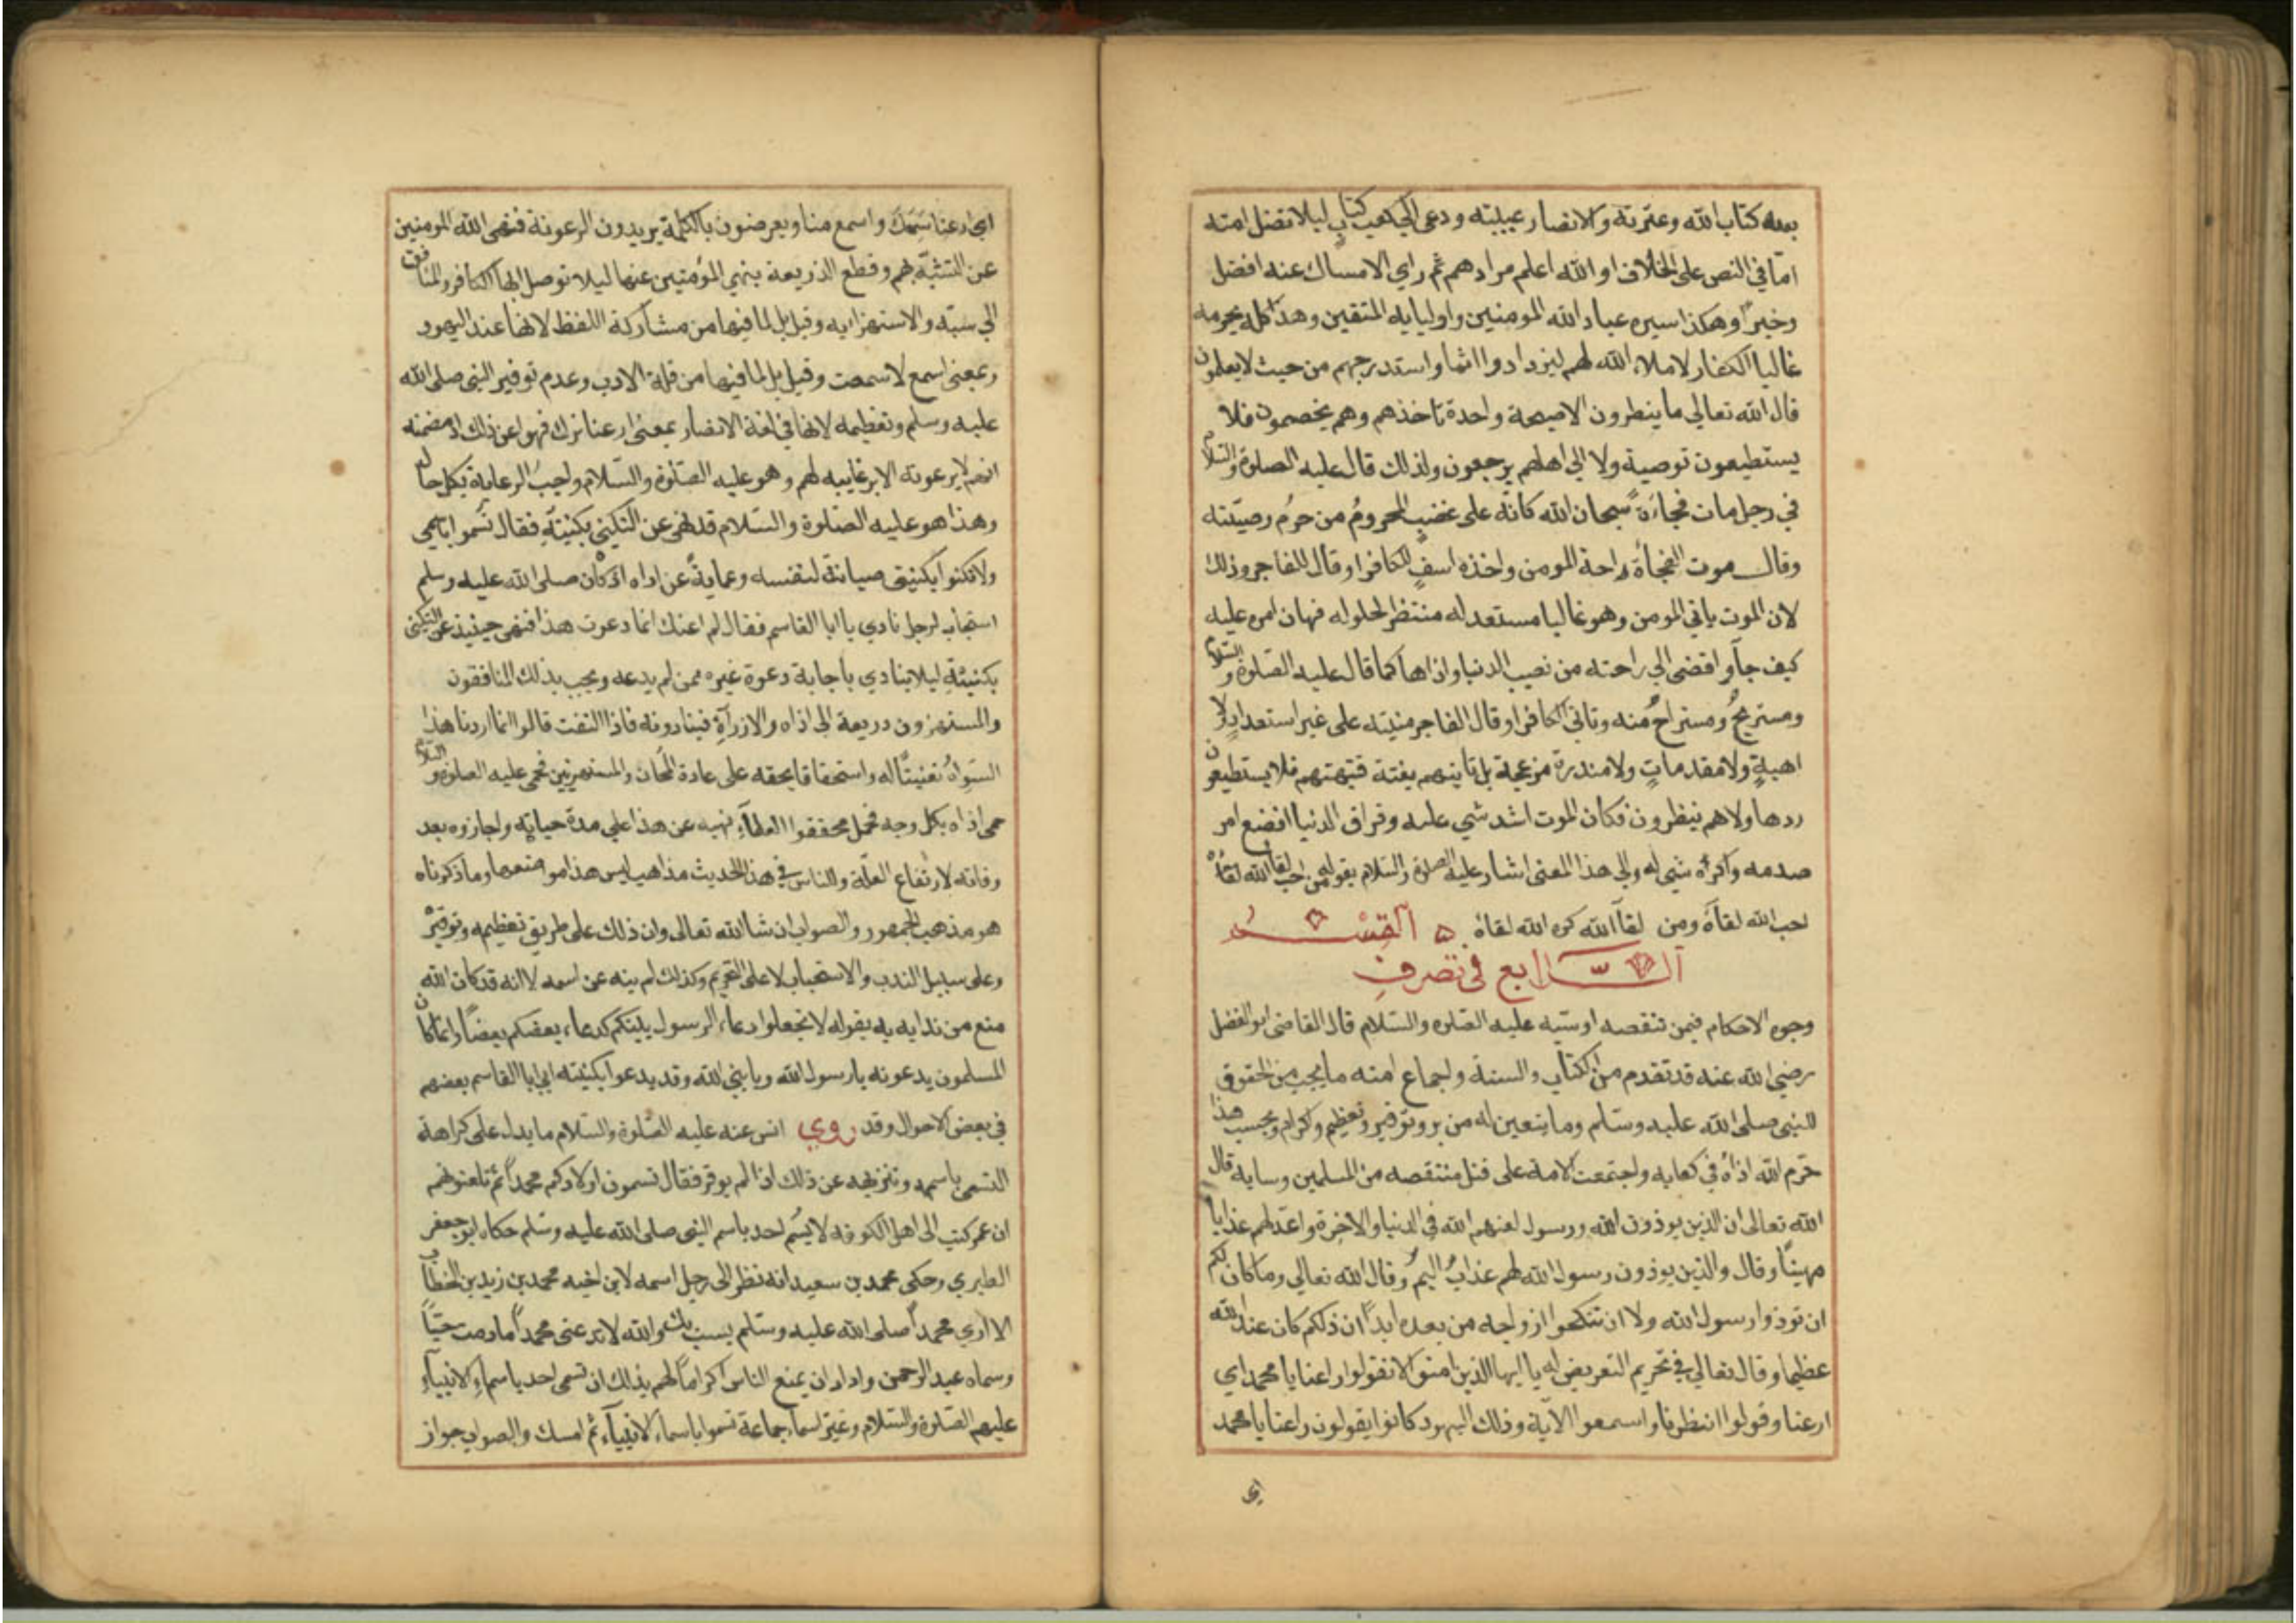 بعده كتاب الله وعترته والانصار عيبته ودعى الى كتب كتاب ليلا تضل امته
اما في النص على الخلاف او الله اعلم مرادهم ثم راي الامساك عنه افضل
وخيرا وهكذا سيره عباد الله المومنين واوليايه المتقين وهذا كله يحرمه
غالبا الكفار لاملاء الله لهم ليزدادوا اثما واستدرجهم من حيث لا يعلمون
قال الله تعالى ما ينظرون الا صيحة واحدة تاخذهم وهم يخصمون فلا
يستطيعون توصية ولا الى اهلهم يرجعون ولذلك قال عليه الصلوة والسلام
في رجل مات فجاءة سبحان الله كانه على غضب المحروم من حرم وصيته
وقال موت الفجأة راحة المومن واخذه اسف للكافر او قال للفاجر وذلك
لان الموت ياتي المومن وهو غالبا مستعد له منتظر لحلوله فهان امره عليه
كيف جآ وافضى الى راحته من نصب الدنيا واذاها كما قال عليه الصلوة والسلام
ومستريح ومستراح منه وتاتي الكافر او قال الفاجر منيته على غير استعداد ولا
اهبة ولا مقدمات ولا منذرة مزعجة بل تاتيهم بغتة فتبهتهم فلا يستطيعون
ردها ولا هم ينظرون فكان الموت اشد شي عليه وفراق الدنيا افضع امر
صدمه واكره شي له والى هذا المعنى اشار عليه الصلوة والسلام بقوله من احب لقا الله لقاه
احب الله لقآه ومن لقآ الله كره الله لقاه ۵ القسم
الرابع في تصرف
وجوه الاحكام فيمن تنقصه او سبه عليه الصلوه والسلام قال القاضي ابو الفضل
رضي الله عنه قد تقدم من الكتاب والسنة واجماع امته ما يجب من الحقوق
للنبي صلى الله عليه وسلم وما يتعين له من بر وتوقير وتعظيم واكرام وبحسب هذا
حرم الله اذاه في كتابه واجتمعت الامة على قتل منتقصه من المسلمين وسابه قال
الله تعالى ان الذين يوذون الله ورسوله لعنهم الله في الدنيا والاخرة واعد لهم عذابا
مهينا وقال والذين يوذون رسول الله لهم عذاب اليم وقال الله تعالى وما كان لكم
ان توذوا رسول الله ولا ان تنكحوا ازواجه من بعده ابدا ان ذلكم كان عند الله
عظيما وقال تعالى في تحريم التعريض له يا ايها الذين امنوا لا تقولوا راعنا يا محمد اي
ارعنا وقولوا انظرنا واسمعوا الآية وذلك اليهود كانوا يقولون راعنا يا محمد
اي
اي ارعنا سمعك واسمع منا ويعرضون بالكلمة يريدون الرعونة فنهى الله المومنين
عن التشبه بهم وقطع الذريعة بنهي المؤمنين عنها ليلا توصل بها الكافر والمنافق
الى سبه والاستهزا به وقيل بل لما فيها من مشاركة اللفظ لانها عند اليهود
وبمعنى اسمع لا سمعت وقيل بل لما فيها من قلة الادب وعدم توقير النبي صلى الله
عليه وسلم وتعظيمه لانها في لغة الانصار بمعنى ارعنا نرك فنهوا عن ذلك اذ مضمنه
انهم لا يرعونه الا برعايته لهم وهو عليه الصلوة والسلام واجب الرعاية بكل حال
وهذا هو عليه الصلوة والسلام قد نهى عن التكني بكنيته فقال تسموا باسمي
ولا تكنوا بكنيتي صيانة لنفسه وحماية عن اذاه اذ كان صلى الله عليه وسلم
استجاب لرجل نادي يا ابا القاسم فقال لم اعنك انما دعوت هذا فنهى حينيذ عن التكني
بكنيته ليلا يتاذي باجابة دعوة غيره ممن لم يدعه ويجب بذلك المنافقون
والمستهزون ذريعة الى اذاه والازرآء فينادونه فاذا التفت قالوا انما اردنا هذا
السواه تعنيتا له واستحقاقا بحقه على عادة المجان والمستهزيين فحمى عليه الصلوة والسلام
حمى اذاه بكل وجه فحمل محققوا العلمآء نهيه عن هذا على مدة حياته واجازوه بعد
وفاته لارتفاع العلة وللناس في هذا الحديث مذاهب ليس هذا موضعها وما ذكرناه
هو مذهب الجمهور والصواب ان شا الله تعالى وان ذلك على طريق تعظيمه وتوقيره
وعلى سبيل الندب والاستحباب لا على التحريم وكذلك لم ينه عن اسمه لانه قد كان الله
منع من ندايه به بقوله لا تجعلوا دعاء الرسول بينكم كدعاء بعضكم بعضا وانما كان
المسلمون يدعونه يا رسول الله ويا نبي الله وقد يدعوا بكنيته ابي ابا القاسم بعضهم
في بعض الاحوال وقد روي انس عنه عليه الصلوة والسلام ما يدل على كراهة
التسمي باسمه وتنزيهه عن ذلك اذا لم يوقر فقال تسمون اولادكم محمدا ثم تلعنونهم
ان عمر كتب الى اهل الكوفه لا يسم احد باسم النبي صلى الله عليه وسلم حكاه ابو جعفر
الطبري وحكى محمد بن سعيد انه نظر الى رجل اسمه لابن اخيه محمد بن زيد بن الخطاب
لا اري محمدا صلى الله عليه وسلم يسب بك والله لا تدعى محمدا ما دمت حيا
وسماه عبد الرحمن واراد ان يمنع الناس اكراما لهم بذلك ان تسمى احد باسماء الانبيآء
عليهم الصلوة والسلام وغير اسماء جماعة تسموا باسماء الانبيآء ثم امسك والصواب جواز